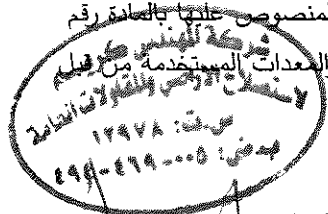 لمنصوص عليها بالمادة رقم
المعدات المستخدمة من قبل
شركة المهندس كريم
لاستصلاح الأراضي والمقاولات العامة
س.ت: ١٢٩٧٨
٤٩٤-٤٦٩-٠٠٥